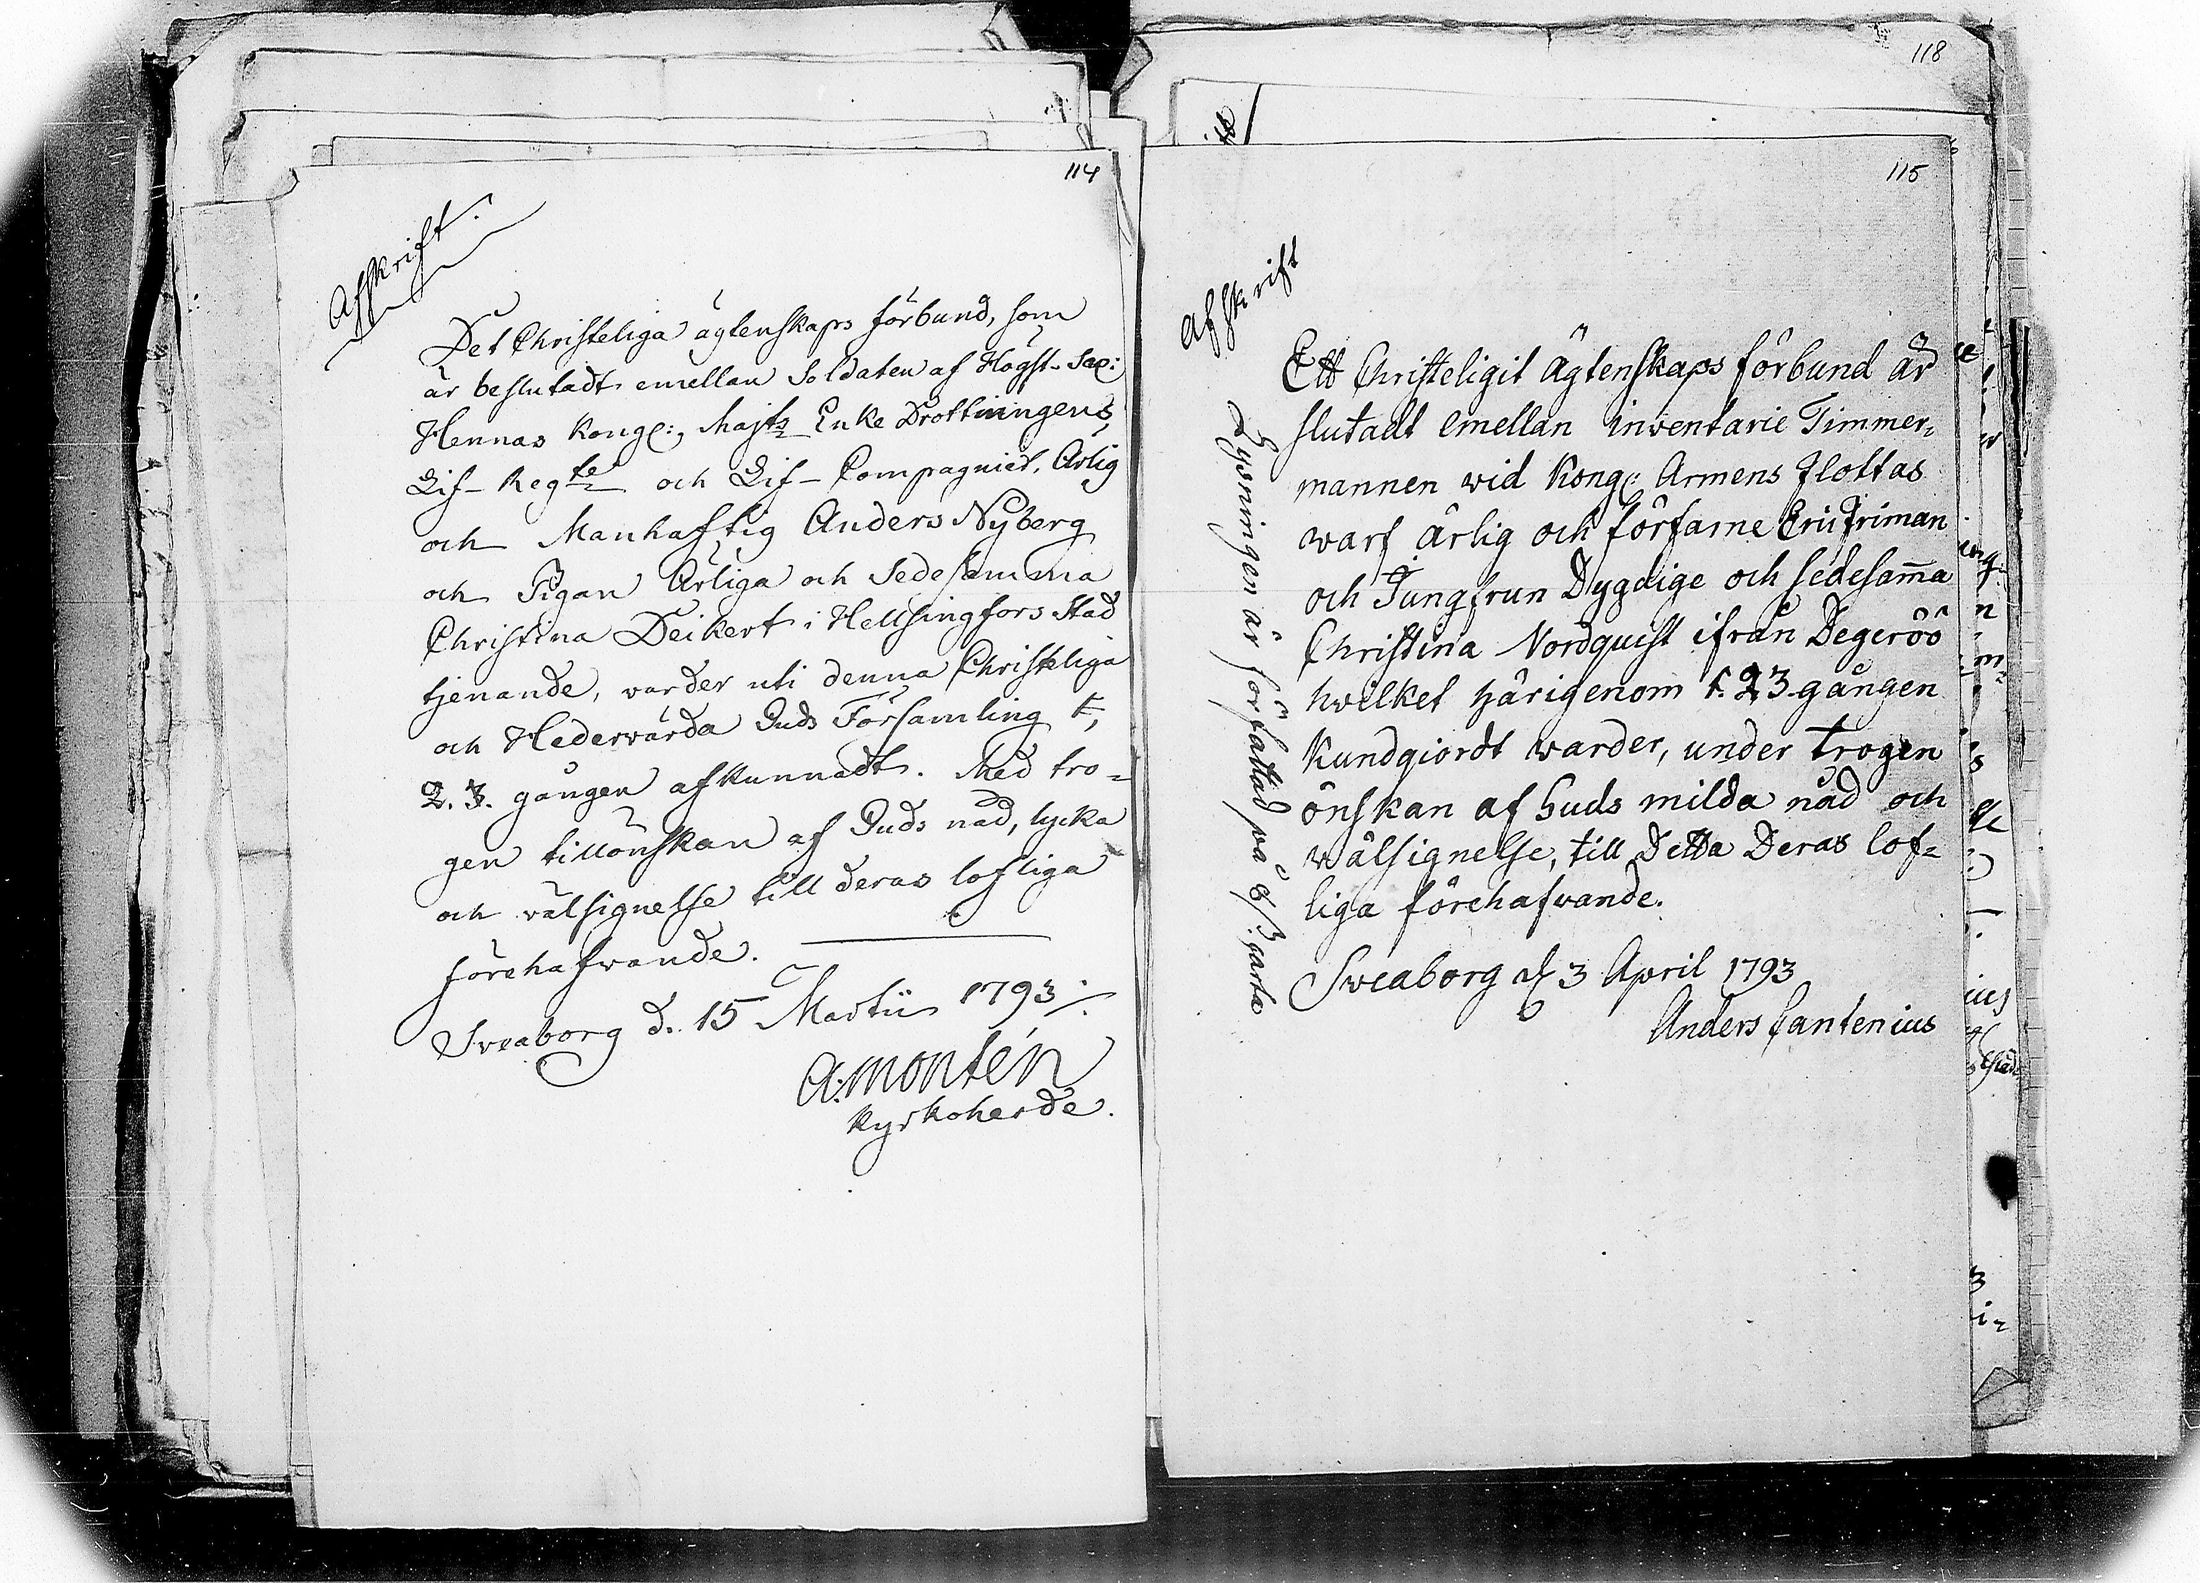 114
Afskrift.
Det Christeliga ägtenskaps förbund, som
är beslutadt emellan Soldaten af Högst-Sal:
Hennas Kongl:, Majts Enke Drottningens,
Lif-Regte och Lif-Compagniet, Ärlig
och Manhaftig Anders Nyberg
och Pigan Ärliga och Sedesamma
Christina Deikert i Hellsingfors Stad
tjenande, varder uti denna Christeliga
och Hedervärda Guds Församling 1,
2. 3. gången afkunnadt. Med tro-
gen tillönskan af Guds nåd, lycka
och välsignelse till deras lofliga
förehafvande.
Sveaborg d. 15 Martii 1793
A: Montén
Kyrkoherde.
118
115
Afskrift
Ett Christeligit Ägtenskaps förbund är
slutadt emellan inventarie Timmer=
mannen wid Kongl: Armens Flottas
warf ärlig och förfarne Eric Friman
och Jungfrun Dygdige och sedesam̄a
Christina Nordquist ifrån Degeröö
hvilket härigenom 1. 2 3 gången
kundgiordt warder, under trogen
önskan af Guds milda nåd och
wälsignelse, till Detta Deras lof=
liga förehafvande.
Sweaborg d 3 April 1793
Anders Cantenius
Lysningen är författad på